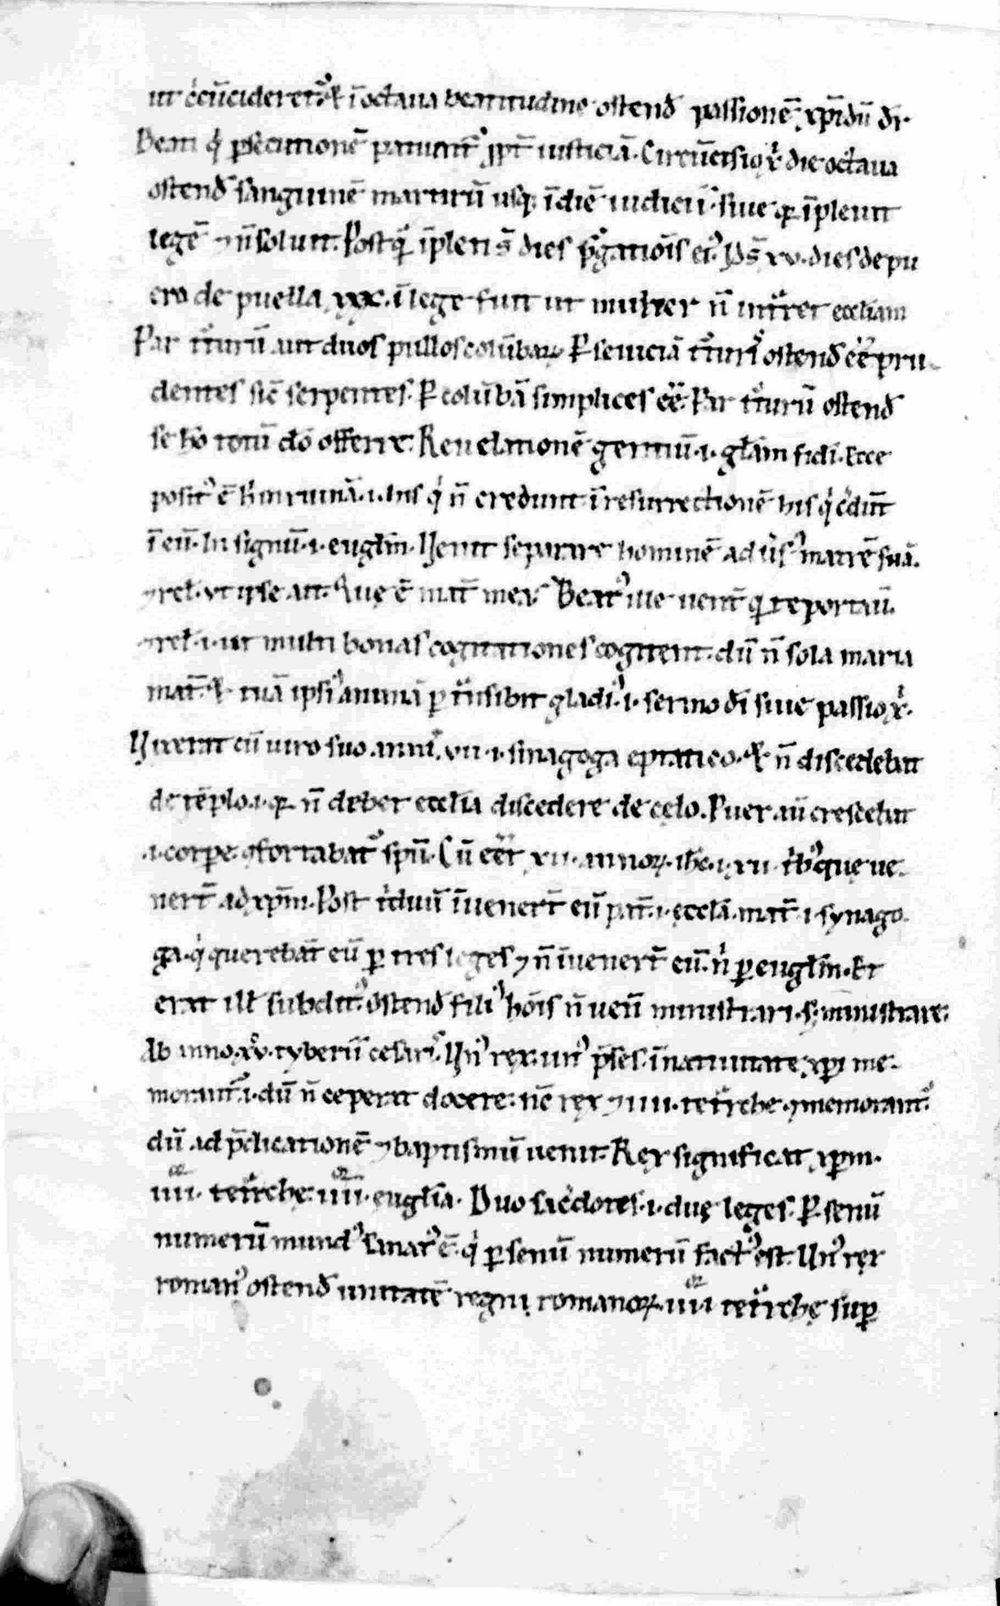 ut c̄cū̄cideret᷑ ⁊ ī octaua beatitudine ostend̄ passionē xp̄i dū dr̄.
Beati q̇ psecutionē patiunt᷑ ꝓpt̄ iusticiā. Circū̄cisio xı̇ die octaua
ostend̄ sanguinē martirū usq; ī diē iudicii. siue q̄ īpleuit
legē ⁊ n̄ soluit. Postq̄ īpleti s̄ dies purgatiōis ei᷒. Hs̄ xv. dies de pu
ero de puella xxx. ī lege fuit ut mulier n̄ intret eccl̄iam
Par t᷑turū aut duos pullos colūbaꝝ. P̱ seuiciā t᷑turis ostend̄ eē̄ pru
dentes sic̄ serpentes. P̱ colūbā simplices eē̄. Par t᷑turū ostend̄
se hō totū d̄o offerre. Reuelationē gentiū. i. gl̄am fidi. Ecce
posit᷒ ē h̄ in ruinā. i. his q̇ n̄ credunt ī resurrectionē his q̇ c̄dūt
ī eū. In signū. i. eugl̄m. Uenit separare hominē aduers᷒ matrē suā.
⁊ rel̄. ut ipse ait. Que ē mat̄ mea. Beat᷒ uent̄ qui te portauī.
⁊ rel̄. i. ut multi bonas cogitationes cogitent. dū n̄ sola maria
mat̄. ⁊ tuā ipsi᷒ animā ꝑt᷑nsibit gladi᷒. i. sermo dī siue passio xı̇.
Uixerat cū uiro suo annis. vii. i. sinagoga ⁊ n̄ discedebat
de tēplo. i. q̄ n̄ debet eccl̄ia discedere de celo. Puer aū crescebat
.i. corpe. ꝯfortabat᷑ spū. Cū eēt xii. annoꝝ. ih̄c. i. xii. t̄b᷒ que ue
nert̄ ad xp̄m. Post t̄duū īuenert̄ eū pat̄. i. eccl̄a. mat̄. i. synago
ga. q̇ querebāt eū ꝑ tres leges ⁊ n̄ īuenert̄ eū. nı̇ ꝑ eugl̄m. Et
erat ill̄ subdit᷒. Ostend̄ fili᷒ hōis n̄ uen̄ ministrari. s; ministrare.
Ab anno. xv. tyberii cesaris. Un᷒ rex. un᷒ p̄ses. ī natiuitate xp̄i me
morant᷑. i. dū n̄ ceperat docere. nc̄ rex ⁊ iiii. tet᷑rche ꝯmemorant᷑.
dū ad p̄dicationē ⁊ baptismū uenit. Rex significat xp̄m.
iiii. tet᷑rche. iiii. eugl̄ia. Duo sac̄dotes. i. due leges. P̱ senū
numerū mund᷒ ē. q̇ ꝑ senū numerū fact᷒ est. Un᷒ rex
roman᷒ ostend̄ unitatē regni romanoꝝ. iiii tet᷑rche sup